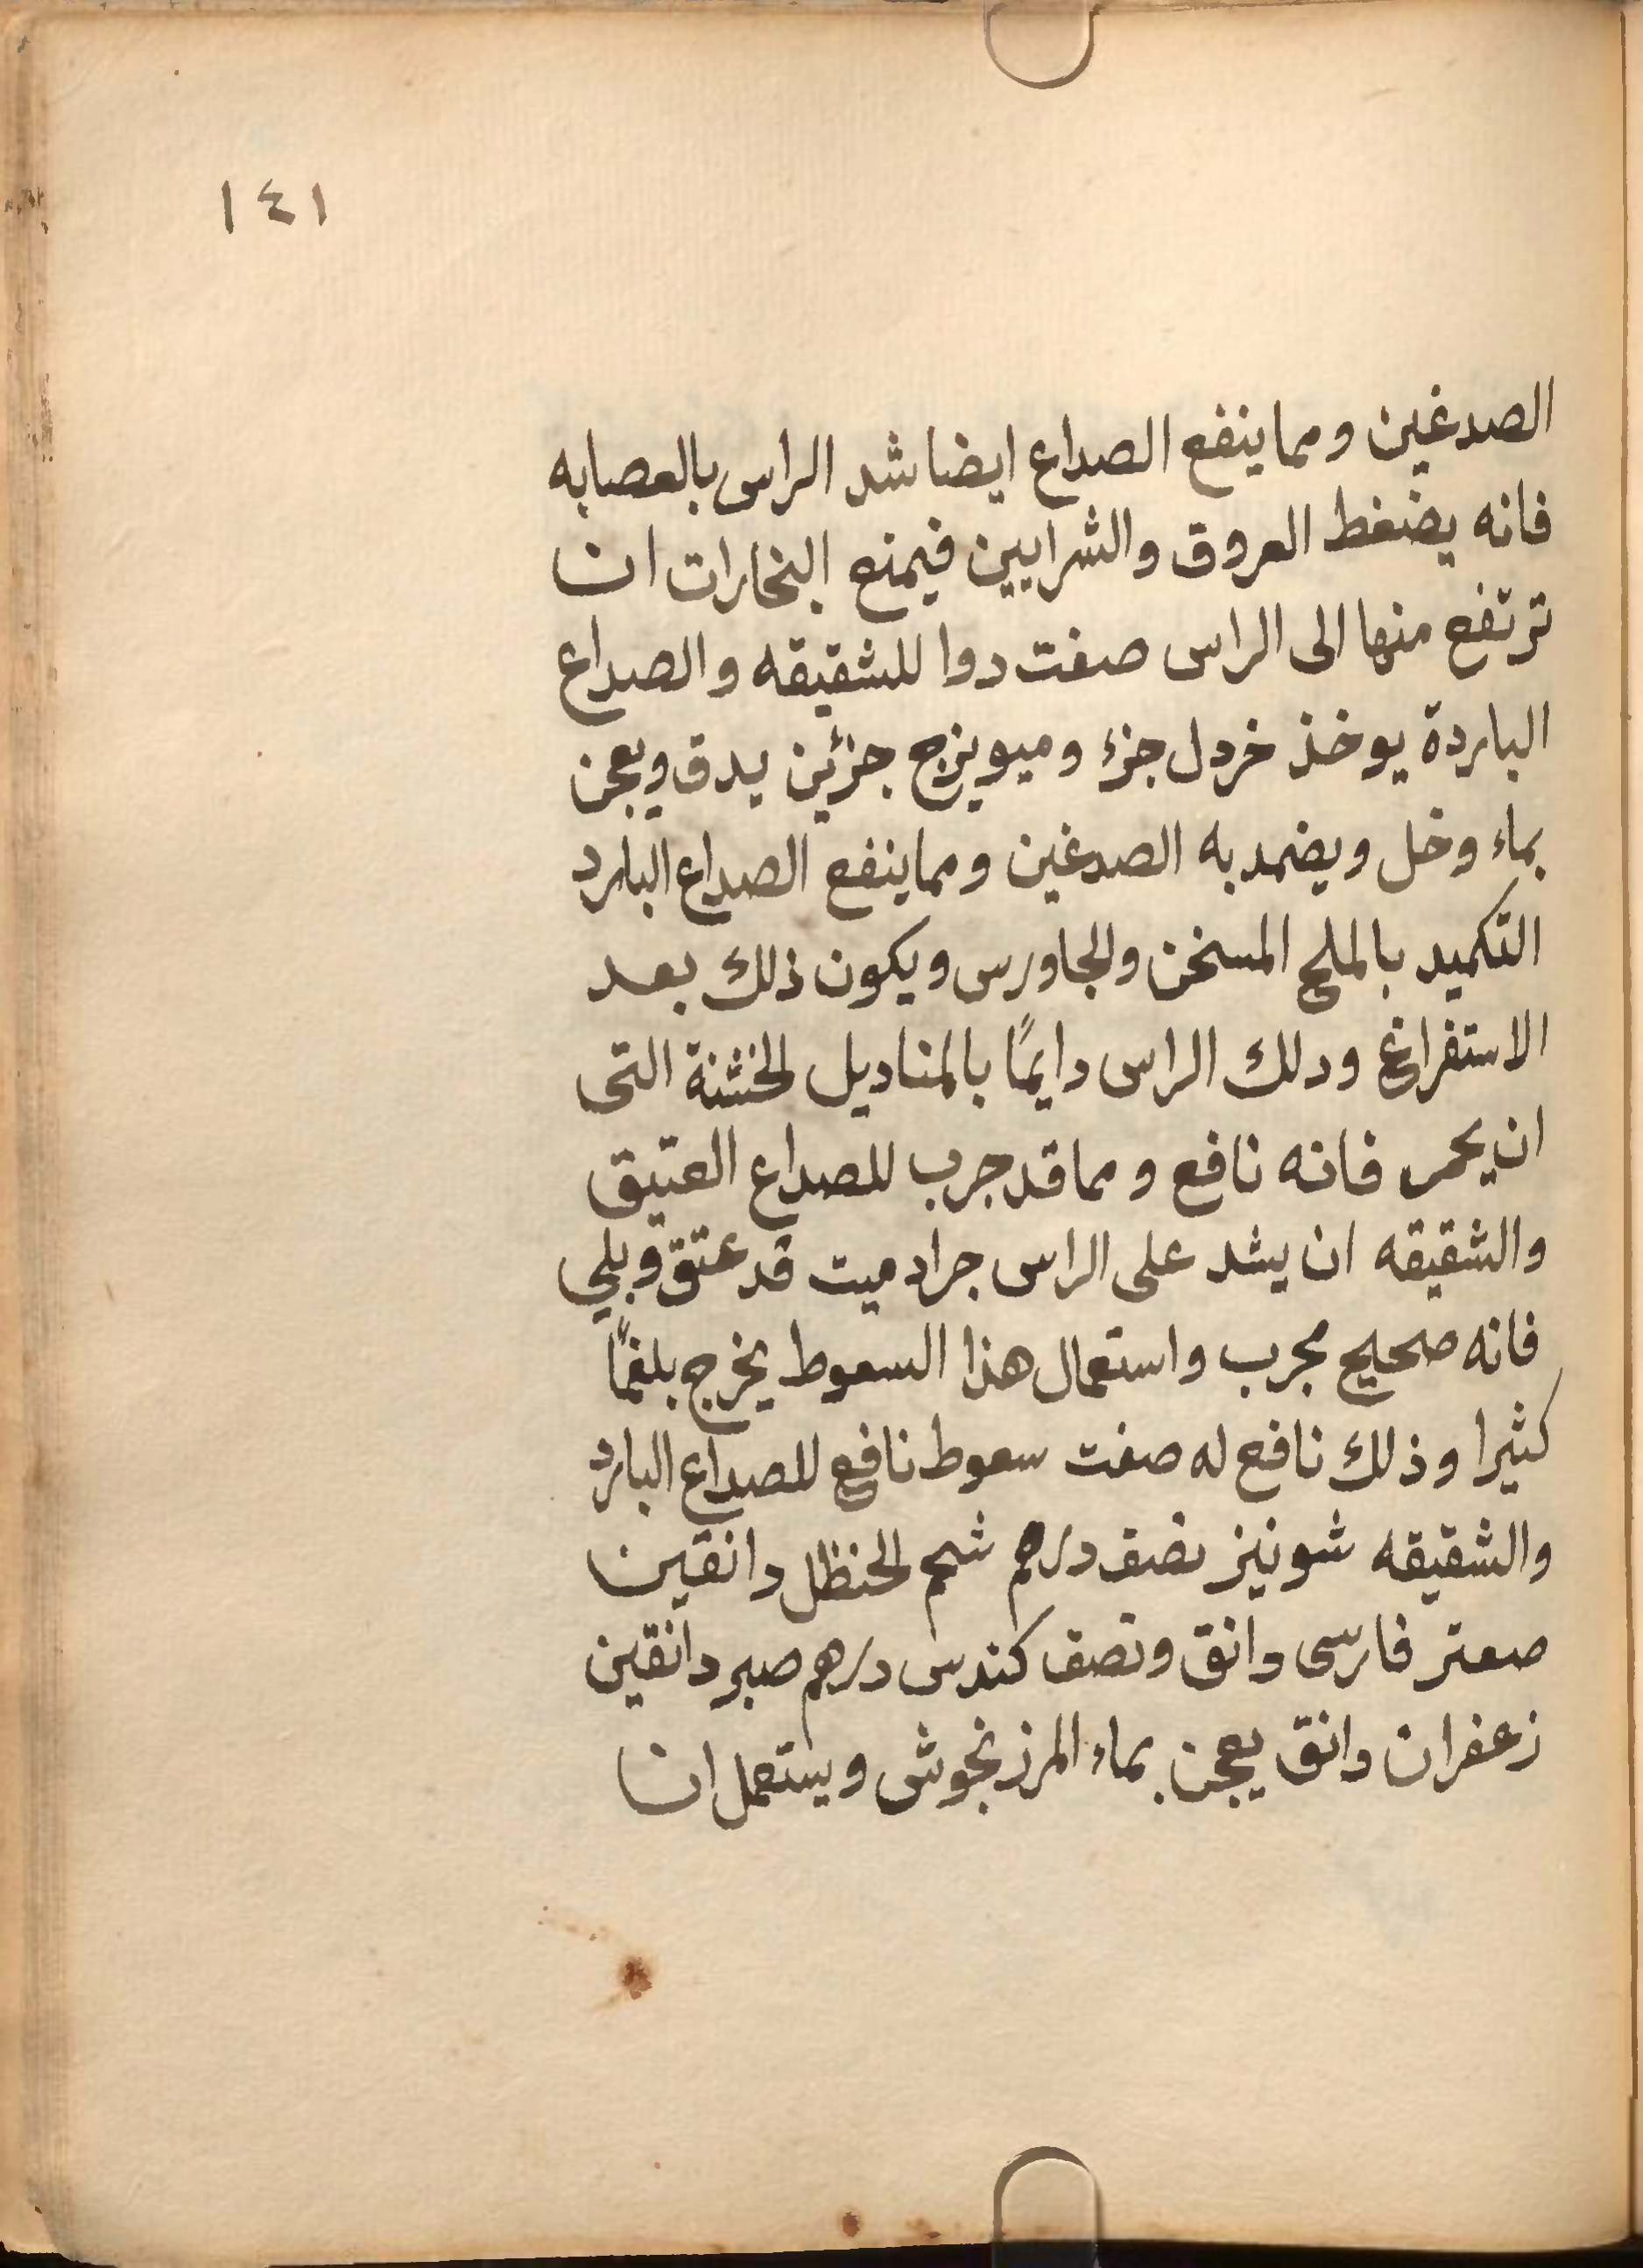 ١٤١
الصدغين ومما ينفع الصداع ايضا شد الراس بالعصابه
فانه يضغط العروق والشرايين فيمنع البخارات ان
ترتفع منها الى الراس صفت دوا للشقيقه والصداع
الباردة يوخذ خردل جزء وميويزج جزئين يدق ويعجن
بماء وخل ويضمد به الصدغين ومما ينفع الصداع البارد
التكميد بالملح المسخن والجاورس ويكون ذلك بعد
الاستفراغ ودلك الراس دايمًا بالمناديل الخشنة التى
ان يحمر فانه نافع ومما قد جرب للصداع العتيق
والشقيقه ان يشد على الراس جراد ميت قد عتق وبلي
فانه صحيح مجرب واستعمال هذا السعوط يخرج بلغمًا
كثيرا وذلك نافع له صفت سعوط نافع للصداع البارد
والشقيقه شونيز نصف درهم شحم الحنظل دانقين
صعتر فارسى دانق ونصف كندس درهم صبر دانقين
زعفران دانق يعجن بماء المرزنجوش ويستعمل ان